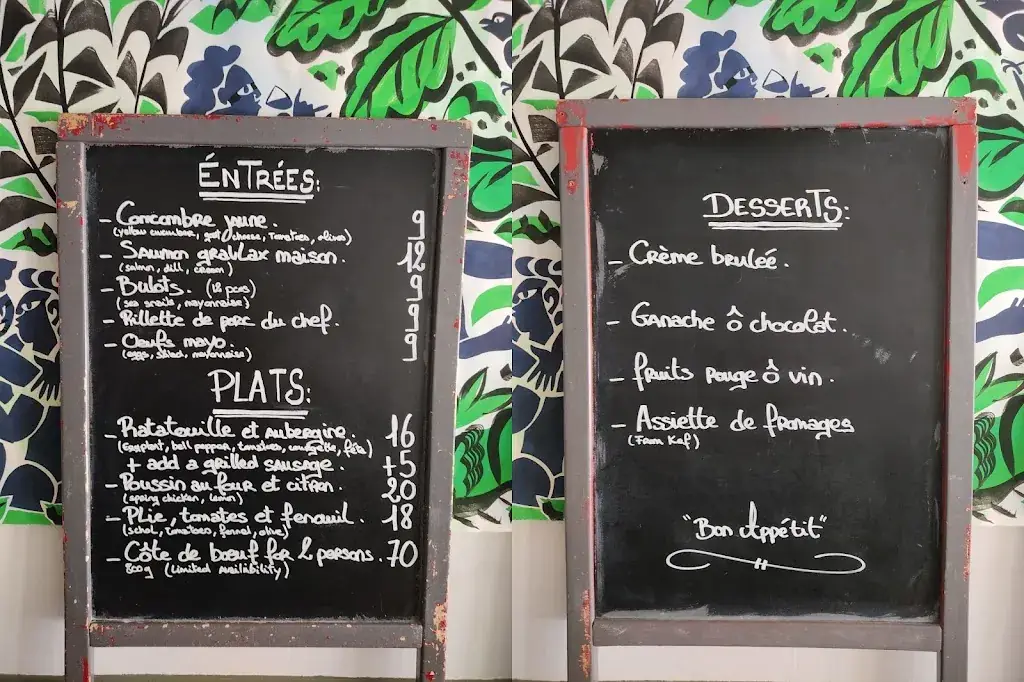 ÉNTRÉES:
- Concombre jaune. 9
(yellow cucumber, goat cheese, Tomatoes, olives)
- Saumon gravlax maison. 12
(salmon, dill, cream)
- Bulots. (12 pces) 9
(sea snails, mayonnaise)
- Rillette de porc du chef. 9
- Oeufs mayo. 9
(eggs, salad, mayonnaise)
PLATS:
- Ratatouille et aubergine. 16
(Eggplant, bell pepper, tomatoes, courgette, fêta)
+ add a grilled sausage. +5
- Poussin au four et citron. 20
(spring chicken, lemon)
- Plie, tomates et fenouil. 18
(schol, tomatoes, fennel, olive)
- Côte de bœuf for 2 persons. 70
800g (Limited availibility)
DESSERTS:
- Crème bruleé.
- Ganache ô chocolat.
- fruits rouge ô vin.
- Assiette de fromages
(From Kef)
"Bon Appétit"